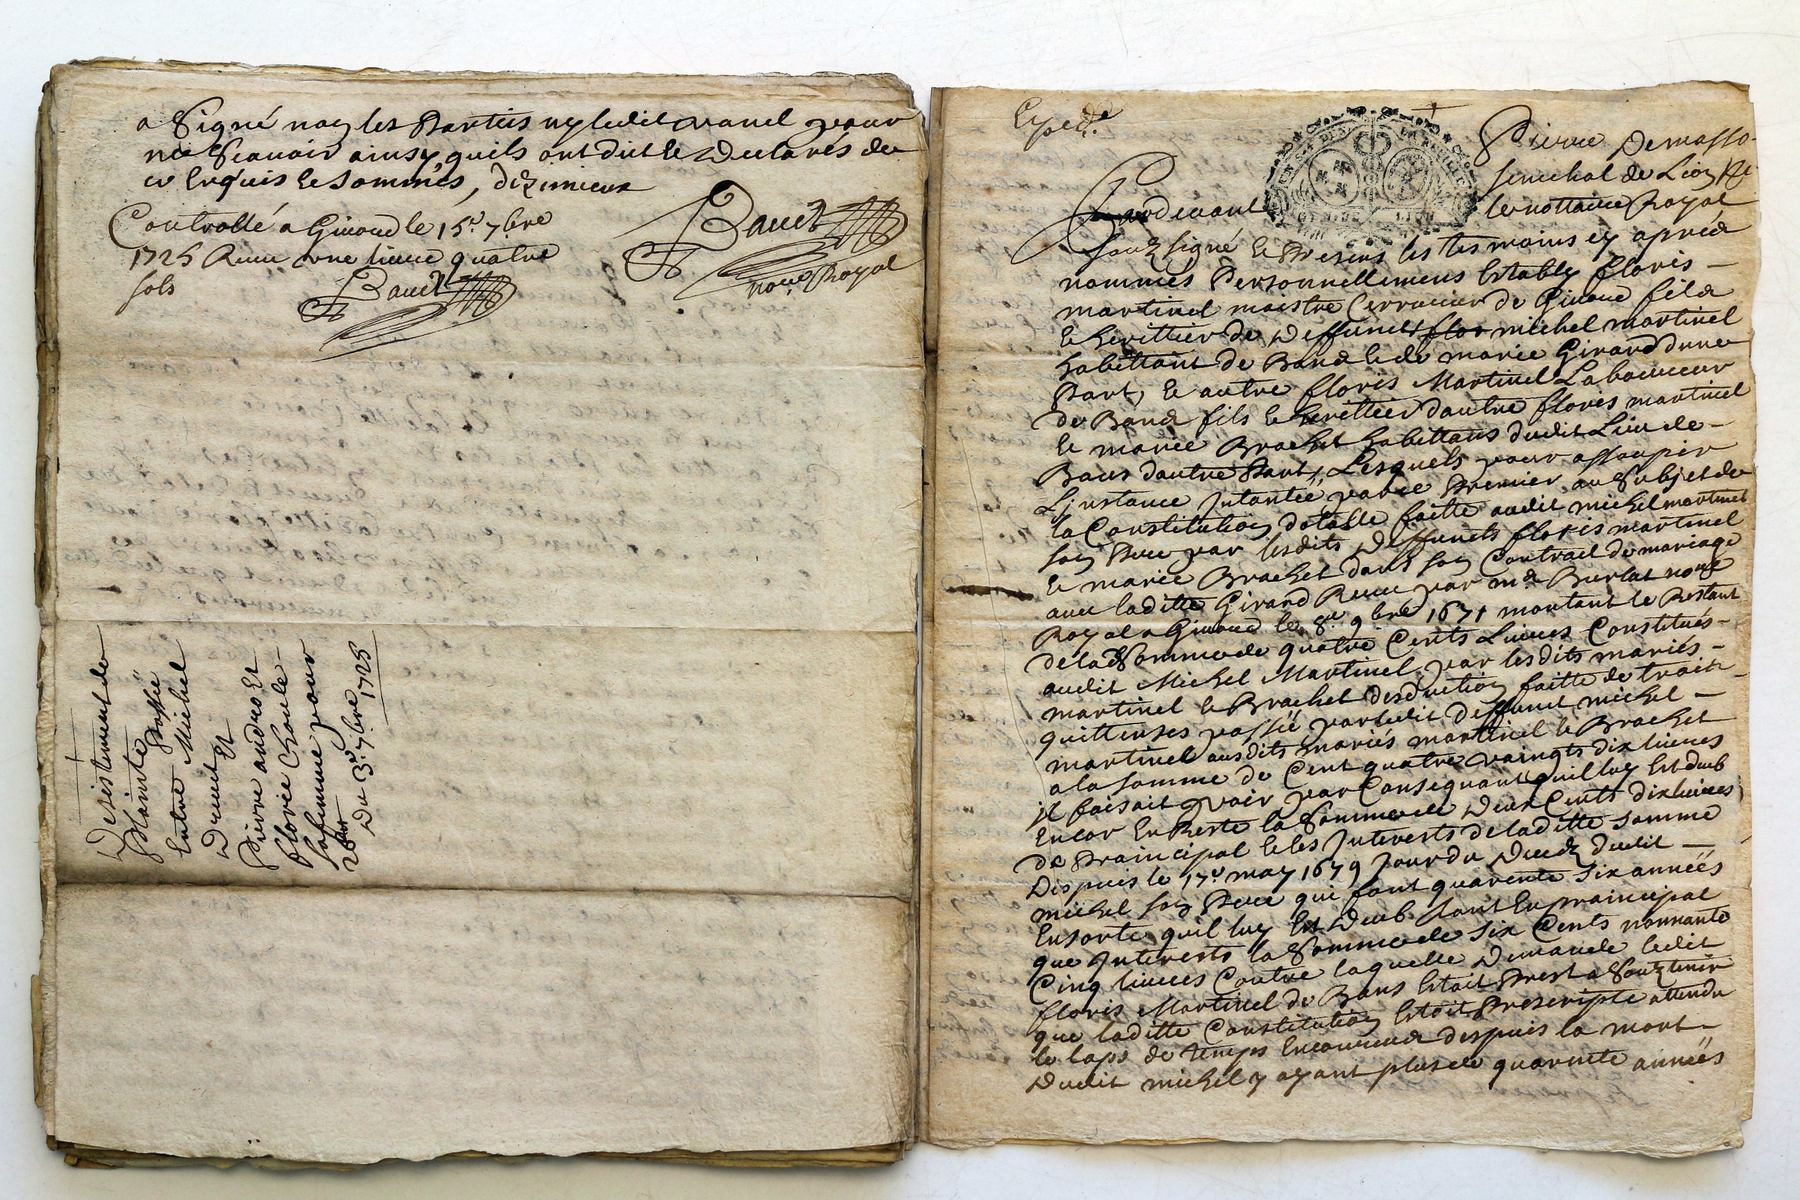 a signé non les Parties ny ledit vanel pour
ne scavoir ainsy quils ont dit et declarés de
ce enquis et sommés,
Controllé a Givord le 15e 7bre
1725 Receu une livre quatre
sols
Baudt
Royal
Baudt
Desistement de
Plainte Passée
Entre Michel
et
Pierre andro et
florie Choule-
sa femme pour
Du 3e 7bre 1725
Exped.
Pierre Demasso-
senechal de Lion
Pardevant le nottaire Royal
soubsigné et Presens les tesmoins cy apres
nommés Personnellement Estably floris-
martinel maistre Serrurier de Givord fils
et herittier de deffunct flor michel martinel
habittant de Bans et de marie Girard dune
Part, et autre floris Martinel Laboureur
de Bans fils et herittier dautre floris martinel
et marie Brachet habittans dudit Lieu de-
Bans dautre Part, Lesquels pour assoupir
Linstance Intantée par le Premier au Subjet de
la Constitution dotalle faitte audit michel martinel
son Pere par lesdits deffuncts floris martinel
et marie Brachet dans son Contract de mariage
avec laditte Girard Receu par me Burlat nore
Royal a Givord le 8e 9bre 1671 montant le Restant
de la Somme de quatre Cents Livres Constitués-
audit Michel Martinel par lesdits mariés-
martinel et Brachet desduction faitte de trois
quittenses passée par ledit deffunct michel-
martinel ausdits mariés martinel et Brachet
a la somme de Cent quatre vaingts dix livres
il faisait voir par Consequant quil luy Est deub
Encor En Reste la Somme de deux Cents dix livres
de Praincipal et les Interests de laditte somme
Despuis le 17e may 1679 Jour du decedz dudit-
michel son Pere qui font quarente six années
Ensorte quil luy Est deub tant En praincipal
que Interests la Somme de six Cents nonnante
Cinq livres Contre laquelle demande ledit
floris Martinel de Bans Estoit Prest a Soubtenir
que laditte Constitution Estoit Prescripte attendu
le laps de temps Encourreu despuis la mort-
dudit michel y ayant plus de quarente années